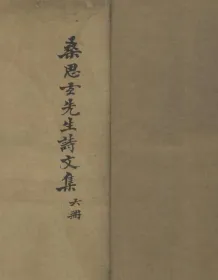 桑思玄先生詩文集 六冊